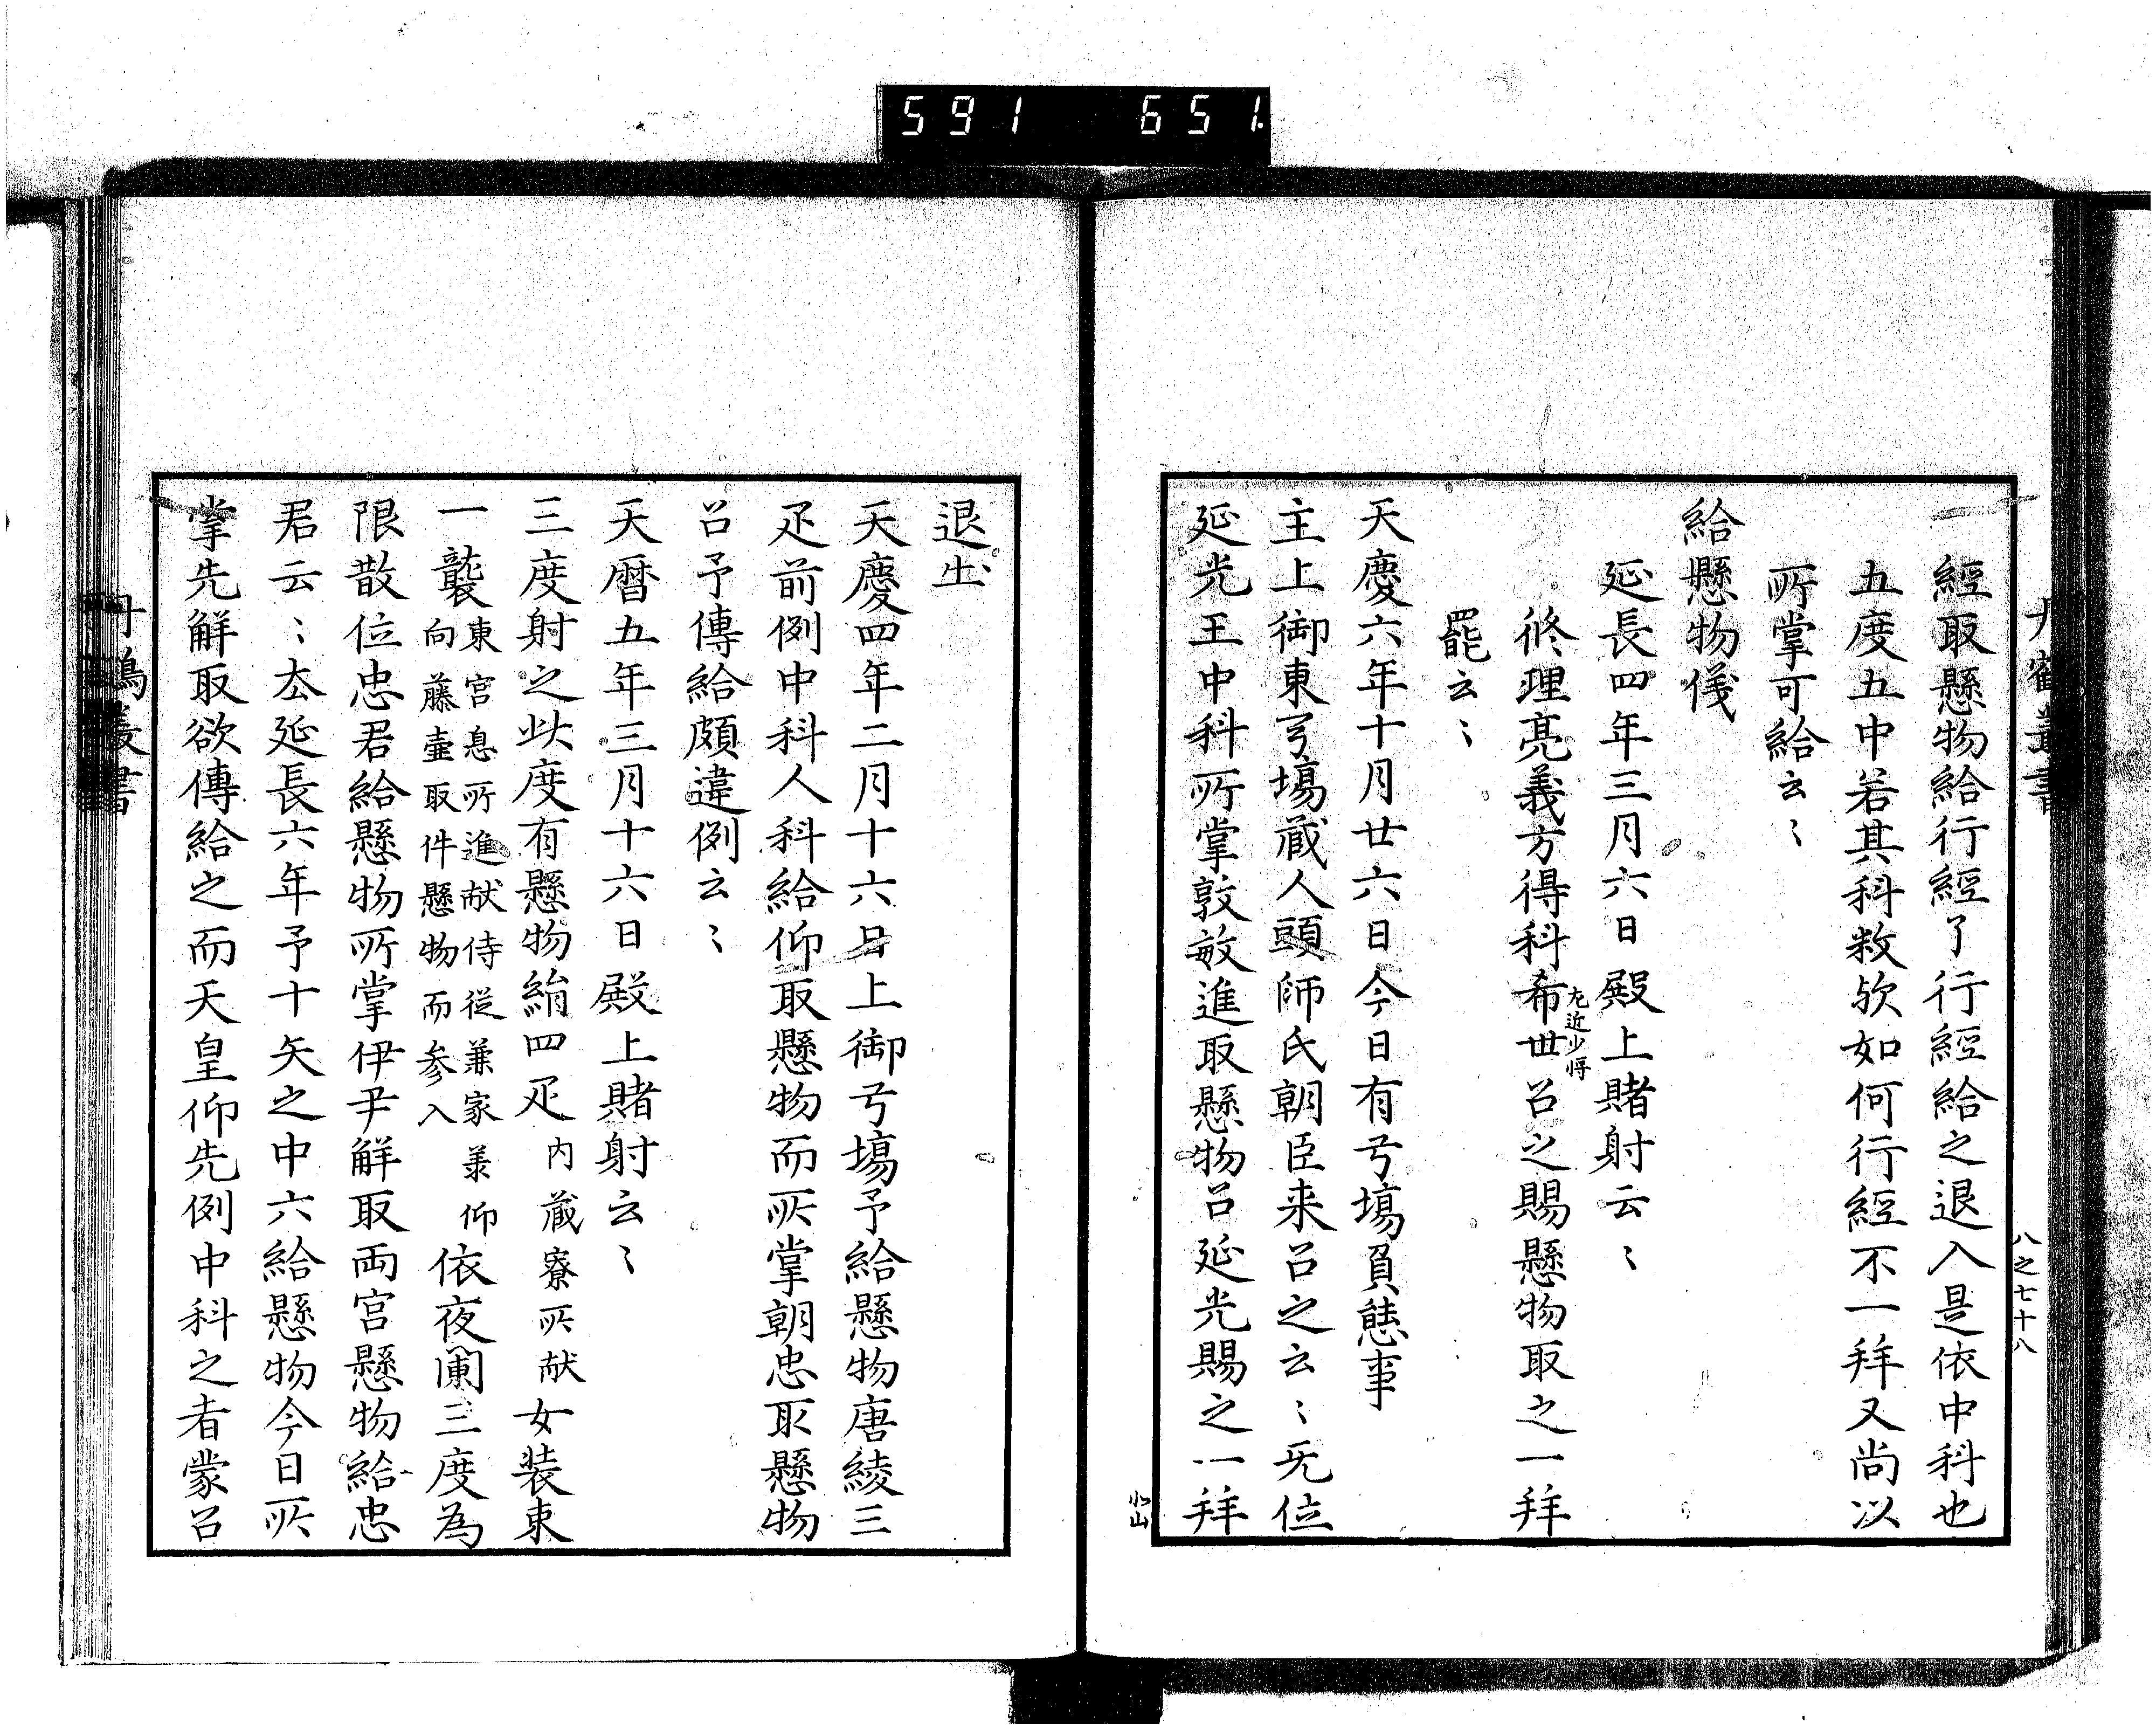 591 651.
丹鶴叢書
八之七十八
經取懸物給行經了行經給之退入是依中科也
五度五中若其科数欤如何行經不一拜又尚以
所掌可給云〻
給懸物儀
延長四年三月六日殿上賭射云〻
修理亮義方得科希世左近少将召之賜懸物取之一拜
罷云〻
天慶六年十月廿六日今日有弓場負態事
主上御東弓場蔵人頭師氏朝臣来召之云〻旡位
延光王中科所掌敦敏進取懸物召延光賜之一拜
小山
退出
天慶四年二月十六日上御弓場予給懸物唐綾三
疋前例中科人科給仰取懸物而所掌朝忠取懸物
召予傳給頗違例云〻
天暦五年三月十六日殿上賭射云〻
三度射之此度有懸物絹四疋内蔵寮所献女装束
一襲東宮息所進献侍従兼家兼仰向藤壷取件懸物而参入依夜闌三度為
限散位忠君給懸物所掌伊尹解取両宮懸物給忠
君云〻去延長六年予十矢之中六給懸物今日所
掌先解取欲傳給之而天皇仰先例中科之者蒙召
丹鶴叢書